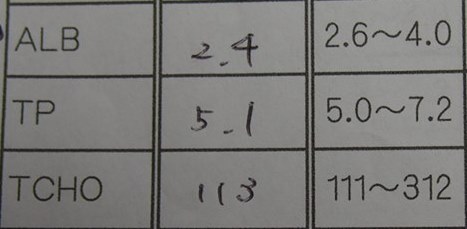 ALB 2.4 2.6～4.0
TP 5.1 5.0～7.2
TCHO 113 111～312